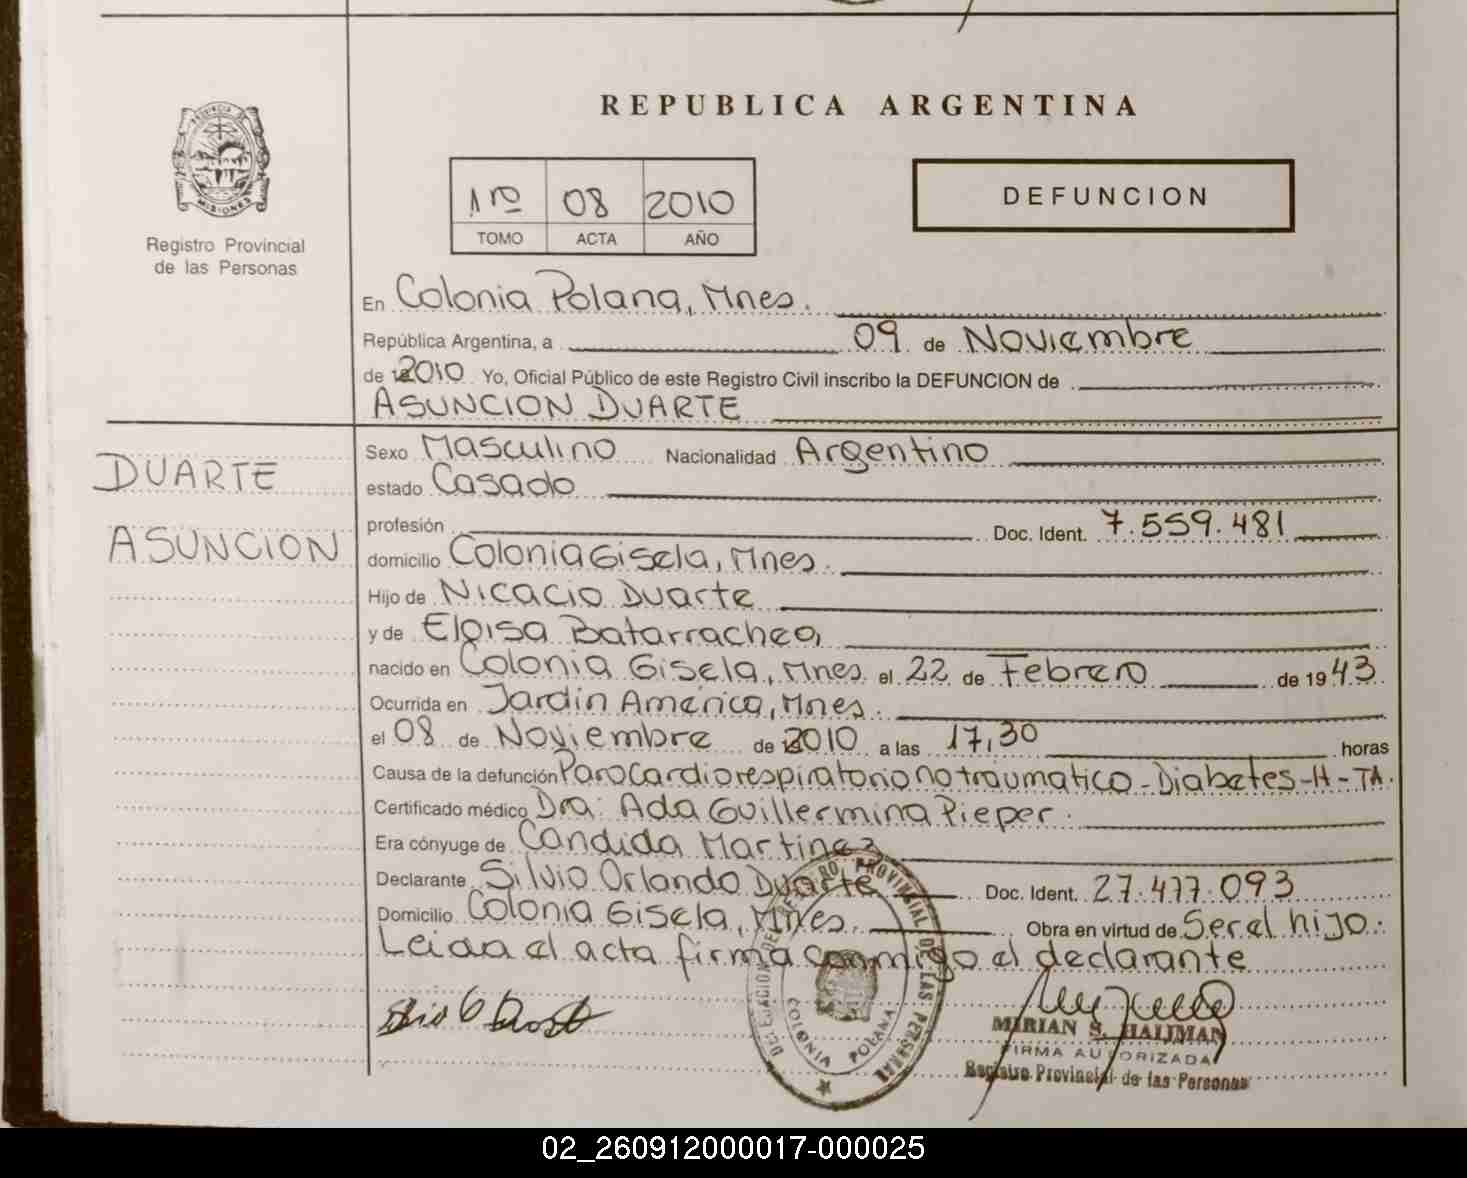 REPUBLICA ARGENTINA
PROVINCIA DE
MISIONES
Registro Provincial
de las Personas
1ro 08 2010
TOMO ACTA AÑO
DEFUNCION
En Colonia Polana, Mnes.
República Argentina, a 09 de Noviembre
de 2010 Yo, Oficial Público de este Registro Civil inscribo la DEFUNCION de
ASUNCION DUARTE
DUARTE
ASUNCION
Sexo Masculino Nacionalidad Argentino
estado Casado
profesión Doc. Ident. 7.559.481
domicilio Colonia Gisela, Mnes.
Hijo de Nicacio Duarte
y de Eloisa Batarracheo,
nacido en Colonia Gisela, Mnes. el 22 de Febrero de 1943.
Ocurrida en Jardín América, Mnes.
el 08 de Noviembre de 2010 a las 17,30 horas
Causa de la defunción Paro Cardiorespiratorio no traumatico - Diabetes - H - TA.
Certificado médico Dra: Ada Guillermina Pieper.
Era cónyuge de Candida Martinez
Declarante Silvio Orlando Duarte Doc. Ident. 27.477.093
Domicilio Colonia Gisela, Mnes. Obra en virtud de Ser el hijo.
Leida el acta firma conmigo el declarante
DELEGACION DEL REGISTRO PROVINCIAL DE LAS PERSONAS
COLONIA POLANA
MIRIAN S. HALIMAN
FIRMA AUTORIZADA
Registro Provincial de las Personas
02_260912000017-000025